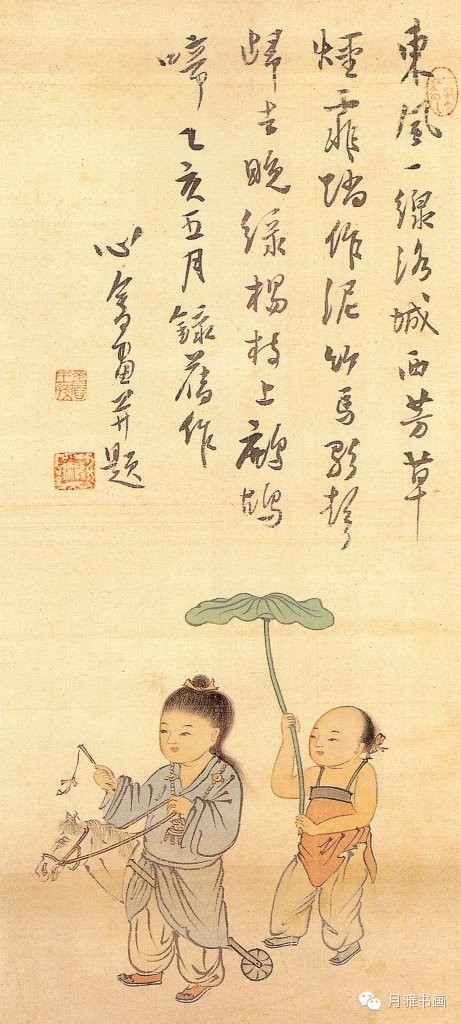 東風一線洛城西芳草
煙霏踏作泥竹馬
歸去晚綠楊枝上鷓鴣
啼乙亥五月錄舊作
心畬畫并題
月雅书画